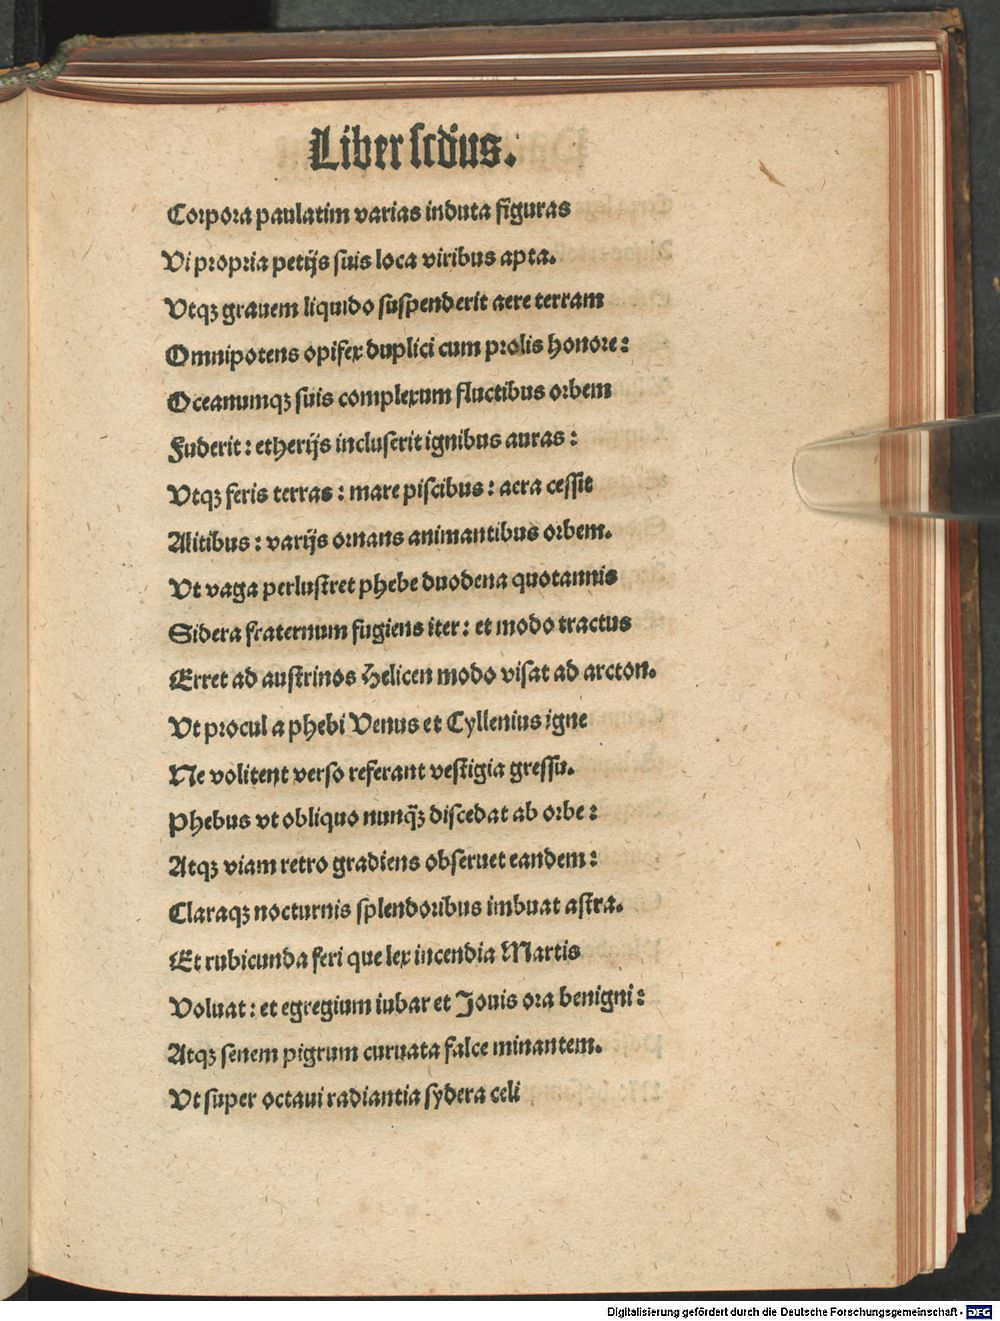 Liber scd̄us.
Corpora paulatim varias induta figuras
Vi propria petijs suis loca viribus apta.
Vtqꝫ grauem liquido suspenderit aere terram
Omnipotens opifex duplici cum prolis honore:
Oceanumqꝫ suis complexum fluctibus orbem
Fuderit: etherijs incluserit ignibus auras:
Vtqꝫ feris terras: mare piscibus: aera cessit
Alitibus: varijs ornans animantibus orbem.
Vt vaga perlustret phebe duodena quotannis
Sidera fraternum fugiens iter: et modo tractus
Erret ad austrinos Helicen modo visat ad arcton.
Vt procul a phebi Venus et Cyllenius igne
Ne volitent verso referant vestigia gressu.
Phebus vt obliquo nunq̄ꝫ discedat ab orbe:
Atqꝫ viam retro gradiens obseruet eandem:
Claraqꝫ nocturnis splendoribus imbuat astra.
Et rubicunda feri que lex incendia Martis
Voluat: et egregium iubar et Jouis ora benigni:
Atqꝫ senem pigrum curuata falce minantem.
Vt super octaui radiantia sydera celi
Digitalisierung gefördert durch die Deutsche Forschungsgemeinschaft - DFG